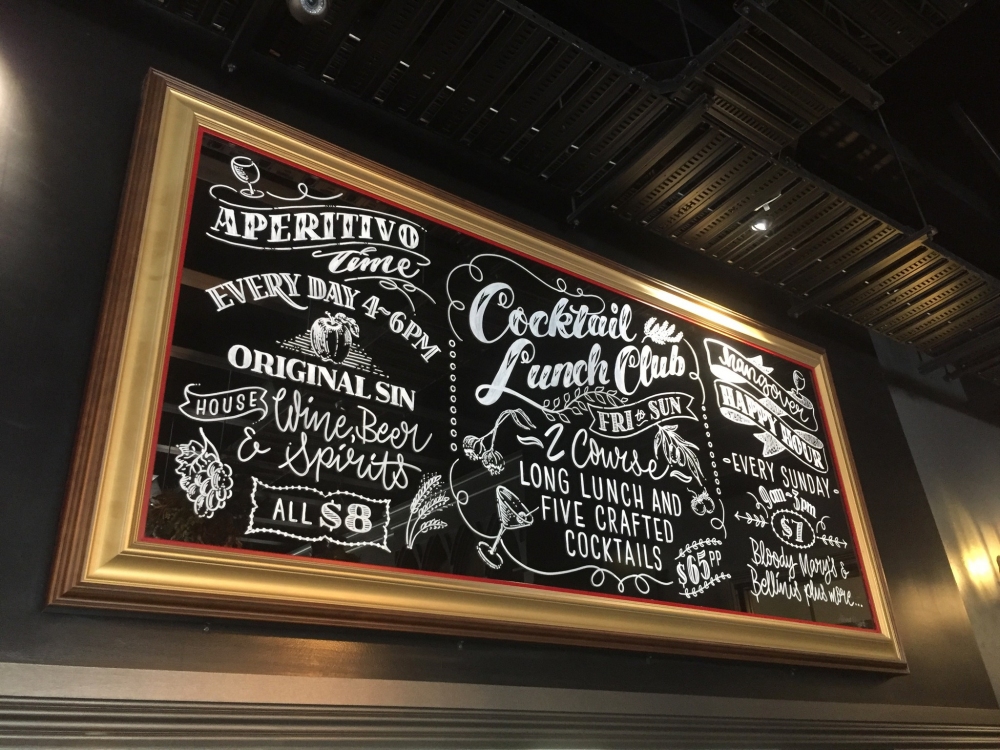 APERITIVO
Time
EVERY DAY 4~6PM
ORIGINAL SIN
HOUSE Wine, Beer
& Spirits
ALL $8
Cocktail
Lunch Club
FRI to SUN
~2 Course
LONG LUNCH AND
FIVE CRAFTED
COCKTAILS
$65PP
Hangover
HAPPY HOUR
-EVERY SUNDAY-
9am-3pm
$7
Bloody Mary's &
Bellinis plus more...